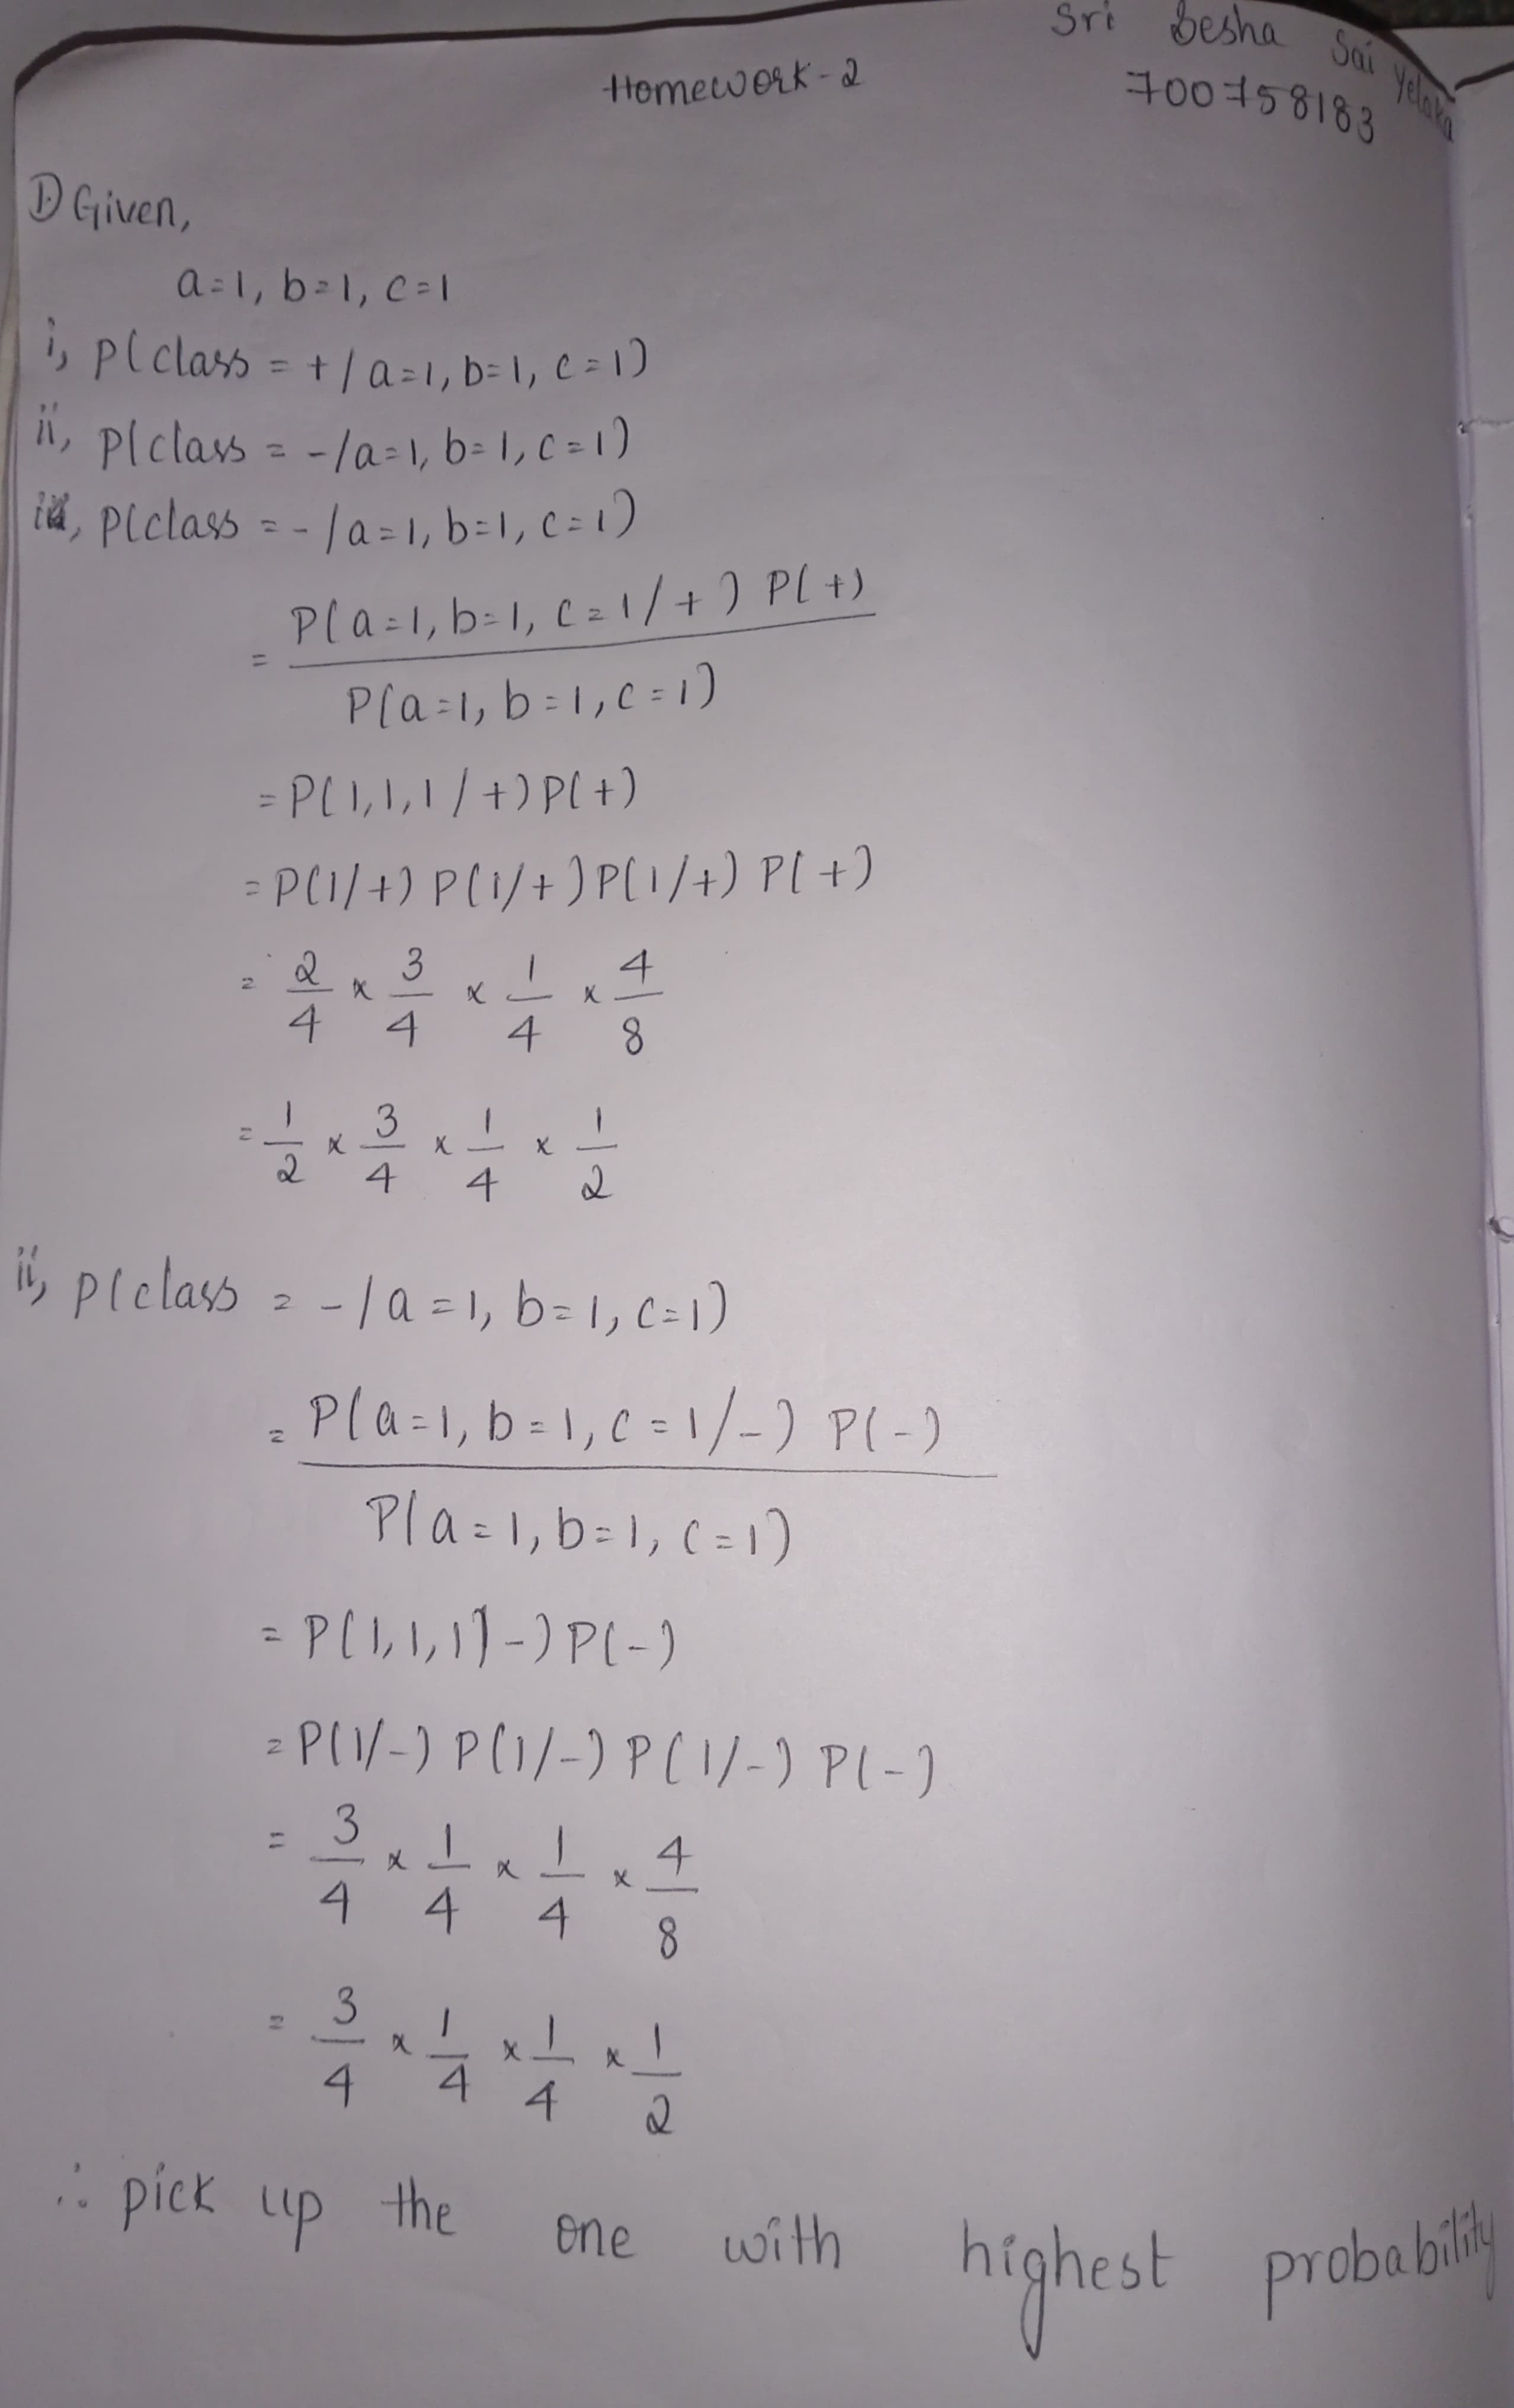 Sri Sesha Sai Yelaka
Homework-2
700758183
1) Given,
a=1, b=1, c=1
i, P(class = +/a=1, b=1, c=1)
ii, P(class = -/a=1, b=1, c=1)
iii, P(class = -/a=1, b=1, c=1)
= P(a=1, b=1, c=1/+) P(+)
P(a=1, b=1, c=1)
= P(1,1,1/+) P(+)
= P(1/+) P(1/+) P(1/+) P(+)
= 2/4 x 3/4 x 1/4 x 4/8
= 1/2 x 3/4 x 1/4 x 1/2
ii, P(class = -/a=1, b=1, c=1)
= P(a=1, b=1, c=1/-) P(-)
P(a=1, b=1, c=1)
= P(1,1,1/-) P(-)
= P(1/-) P(1/-) P(1/-) P(-)
= 3/4 x 1/4 x 1/4 x 4/8
= 3/4 x 1/4 x 1/4 x 1/2
∴ pick up the one with highest probability